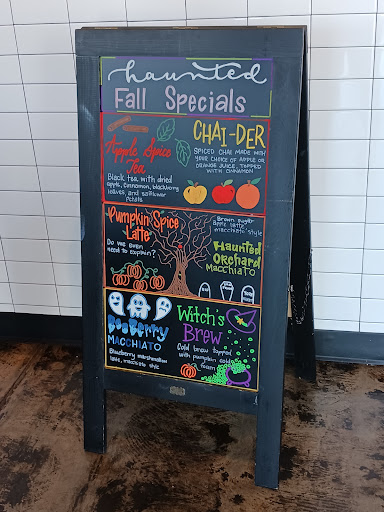 haunted
Fall Specials
Apple Spice
Tea
Black tea with dried
apple, cinnamon, blackberry
leaves, and safflower
petals
CHAI-DER
SPICED CHAI MADE WITH
YOUR CHOICE OF APPLE OR
ORANGE JUICE, TOPPED
WITH CINNAMON
Pumpkin Spice
Latte
Do we even
need to explain?
Brown sugar
apple latte
macchiato style
Haunted
Orchard
MACCHIATO
BooBERRY
MACCHIATO
Blueberry marshmallow
latte, macchiato style
Witch's
Brew
Cold brew topped
with pumpkin cold
foam